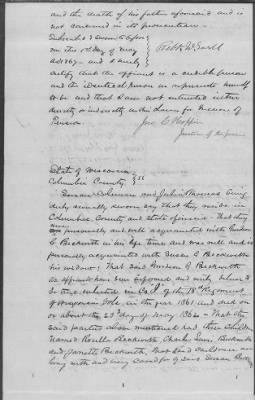 and the death of his father aforesaid and is
not concerned in its prosecution.
Subscribed & sworn to before
me this 1st day of May
AD 1867 and I hereby
certify that the affiant is a credible person
and the identical person he represents himself
to be and that I am not interested either
directly or indirectly in this claim for Increase of
Pension
Justice of the peace
State of Wisconsin
Columbia County } SS
Susan and being
duly severally sworn say that they reside in
Columbia County and state aforesaid. That they
were personally and well acquainted with
Beckwith in his life time and was well and is
personally acquainted with Susan C Beckwith
his widow; That said Beckwith
as affiants have been informed and verily believe
to be true enlisted in Co of the 18th Regiment
of Wisconsin Vols, in the year 1861 and died on
or about the 23d day of May 1862 - That the
said parties above mentioned had three children
named Rosella Beckwith Charles Beckwith
and Beckwith that said children are
living with and being cared for by said Susan